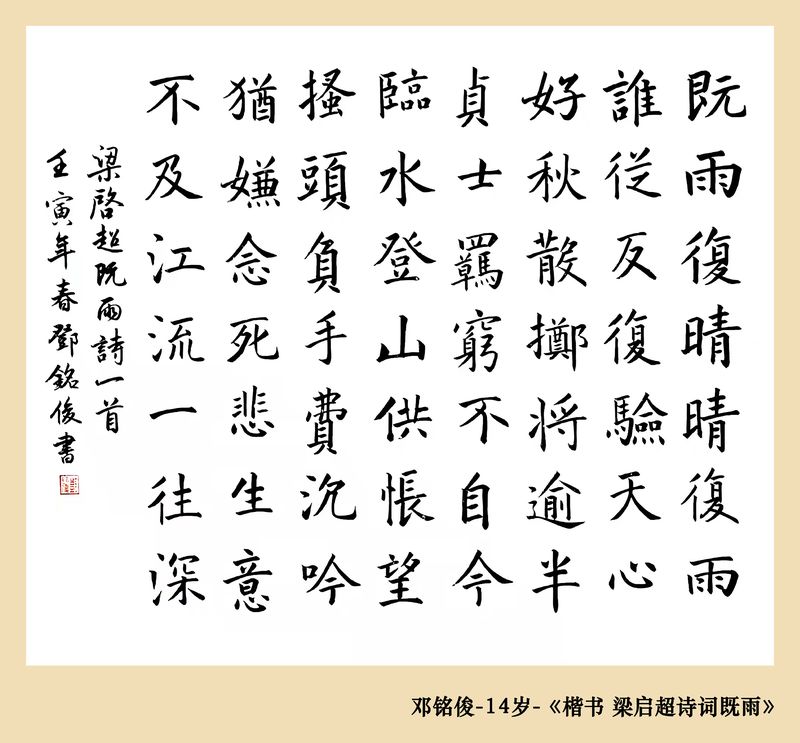 既雨復晴晴復雨
誰従反復驗天心
好秋散擲将逾半
貞士羈窮不自今
臨水登山供悵望
搔頭負手費沉吟
猶嫌念死悲生意
不及江流一往深
梁啓超既雨詩一首
壬寅年春鄧銘俊書
邓铭俊-14岁-《楷书 梁启超诗词既雨》